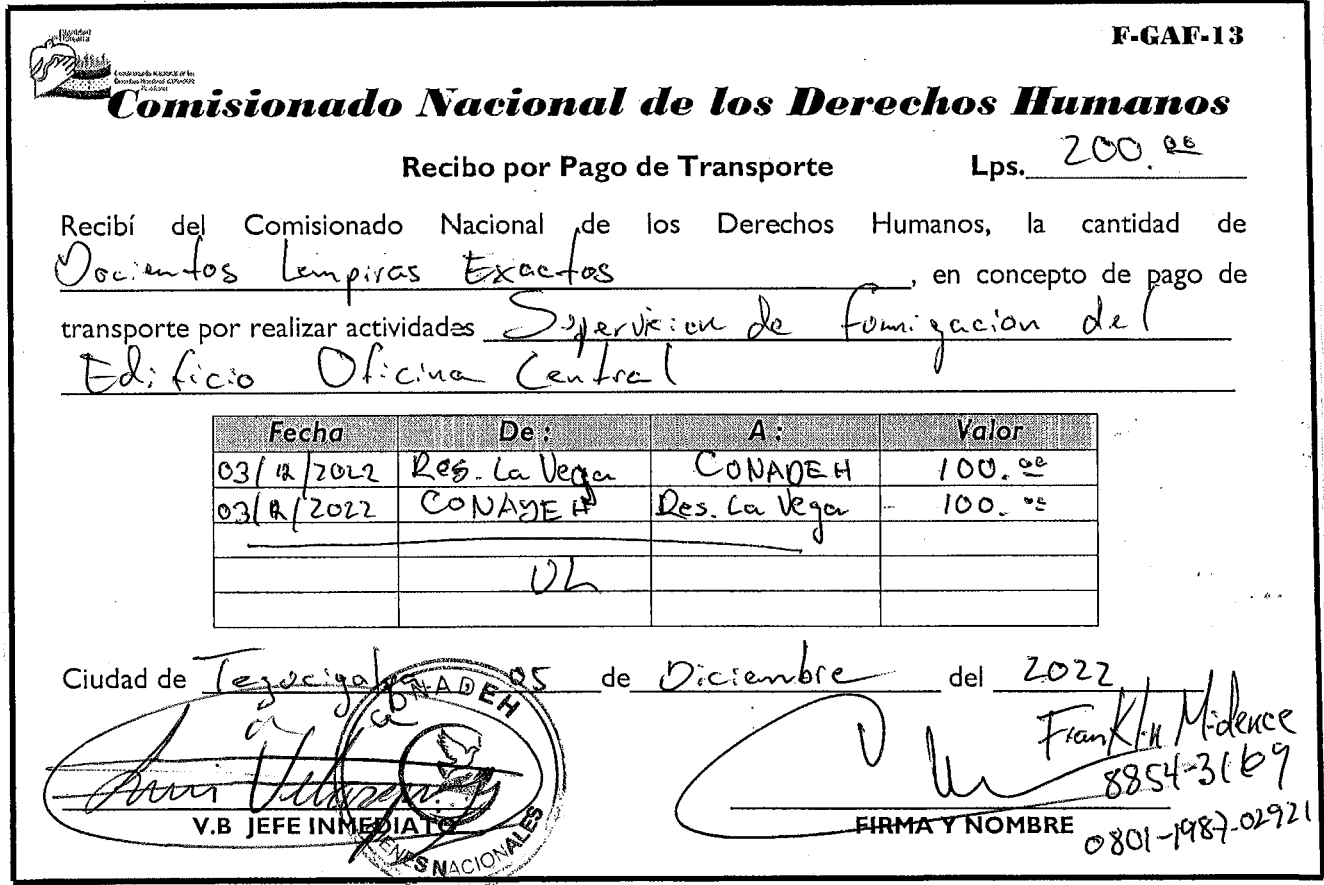 F-GAF-13
Comisionado Nacional de los Derechos Humanos
Recibo por Pago de Transporte Lps. 200.00
Recibí del Comisionado Nacional de los Derechos Humanos, la cantidad de
Docientos Lempiras Exactos, en concepto de pago de
transporte por realizar actividades Supervicion de fumigacion del
Edificio Oficina Central
Fecha De : A : Valor
03/12/2022 Res. La Vega CONADEH 100.00
03/12/2022 CONADEH Res. La Vega 100.00
Ciudad de Tegucigalpa 05 de Diciembre del 2022
CONADEH
BIENES NACIONALES
Franklin Midence
8854-3169
V.B JEFE INMEDIATO FIRMA Y NOMBRE 0801-1987-02921